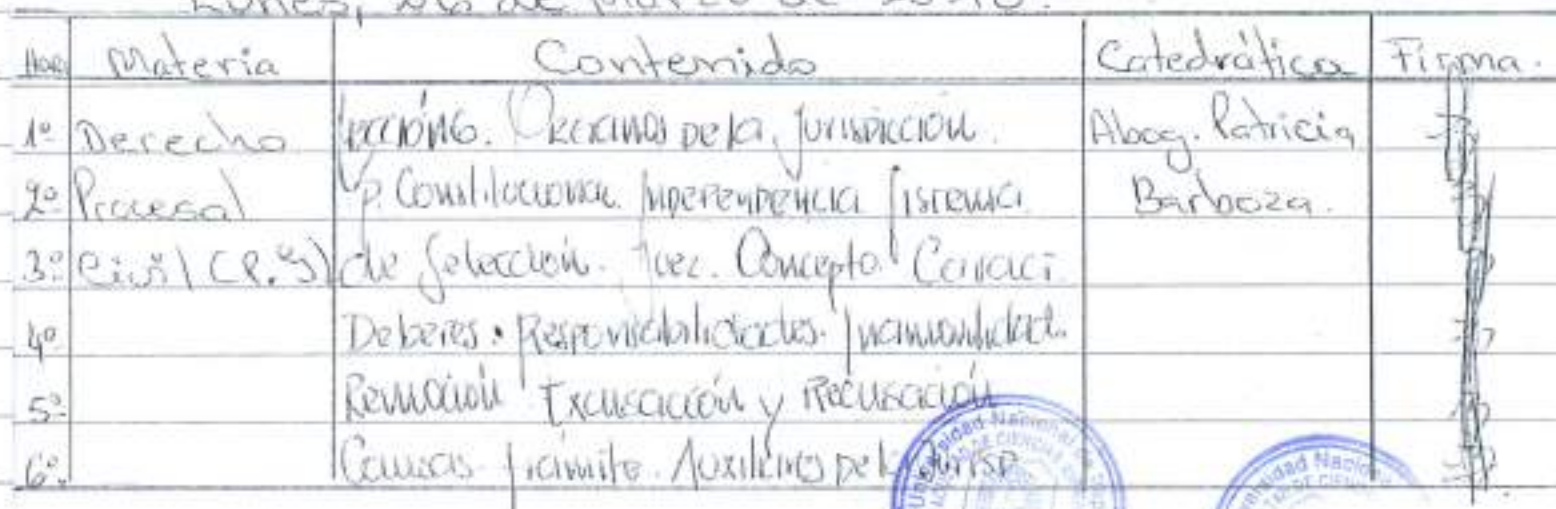 Lunes, de Marzo de
Hora Materia Contenido Catedrática Firma.
1º Derecho Lección 6. Organos de la Jurisdicción. Abog. Patricia
2º Procesal P. Constitucional. Independencia Sistema Barboza.
3º Civil de Selección. Juez. Concepto. Caract.
4º Deberes. Responsabilidades. Inamovilidad.
5º Remoción Excusación y Recusación
6º Causas Trámite. Auxiliares de la Jurisd.
Universidad Nacional
Universidad Nacio